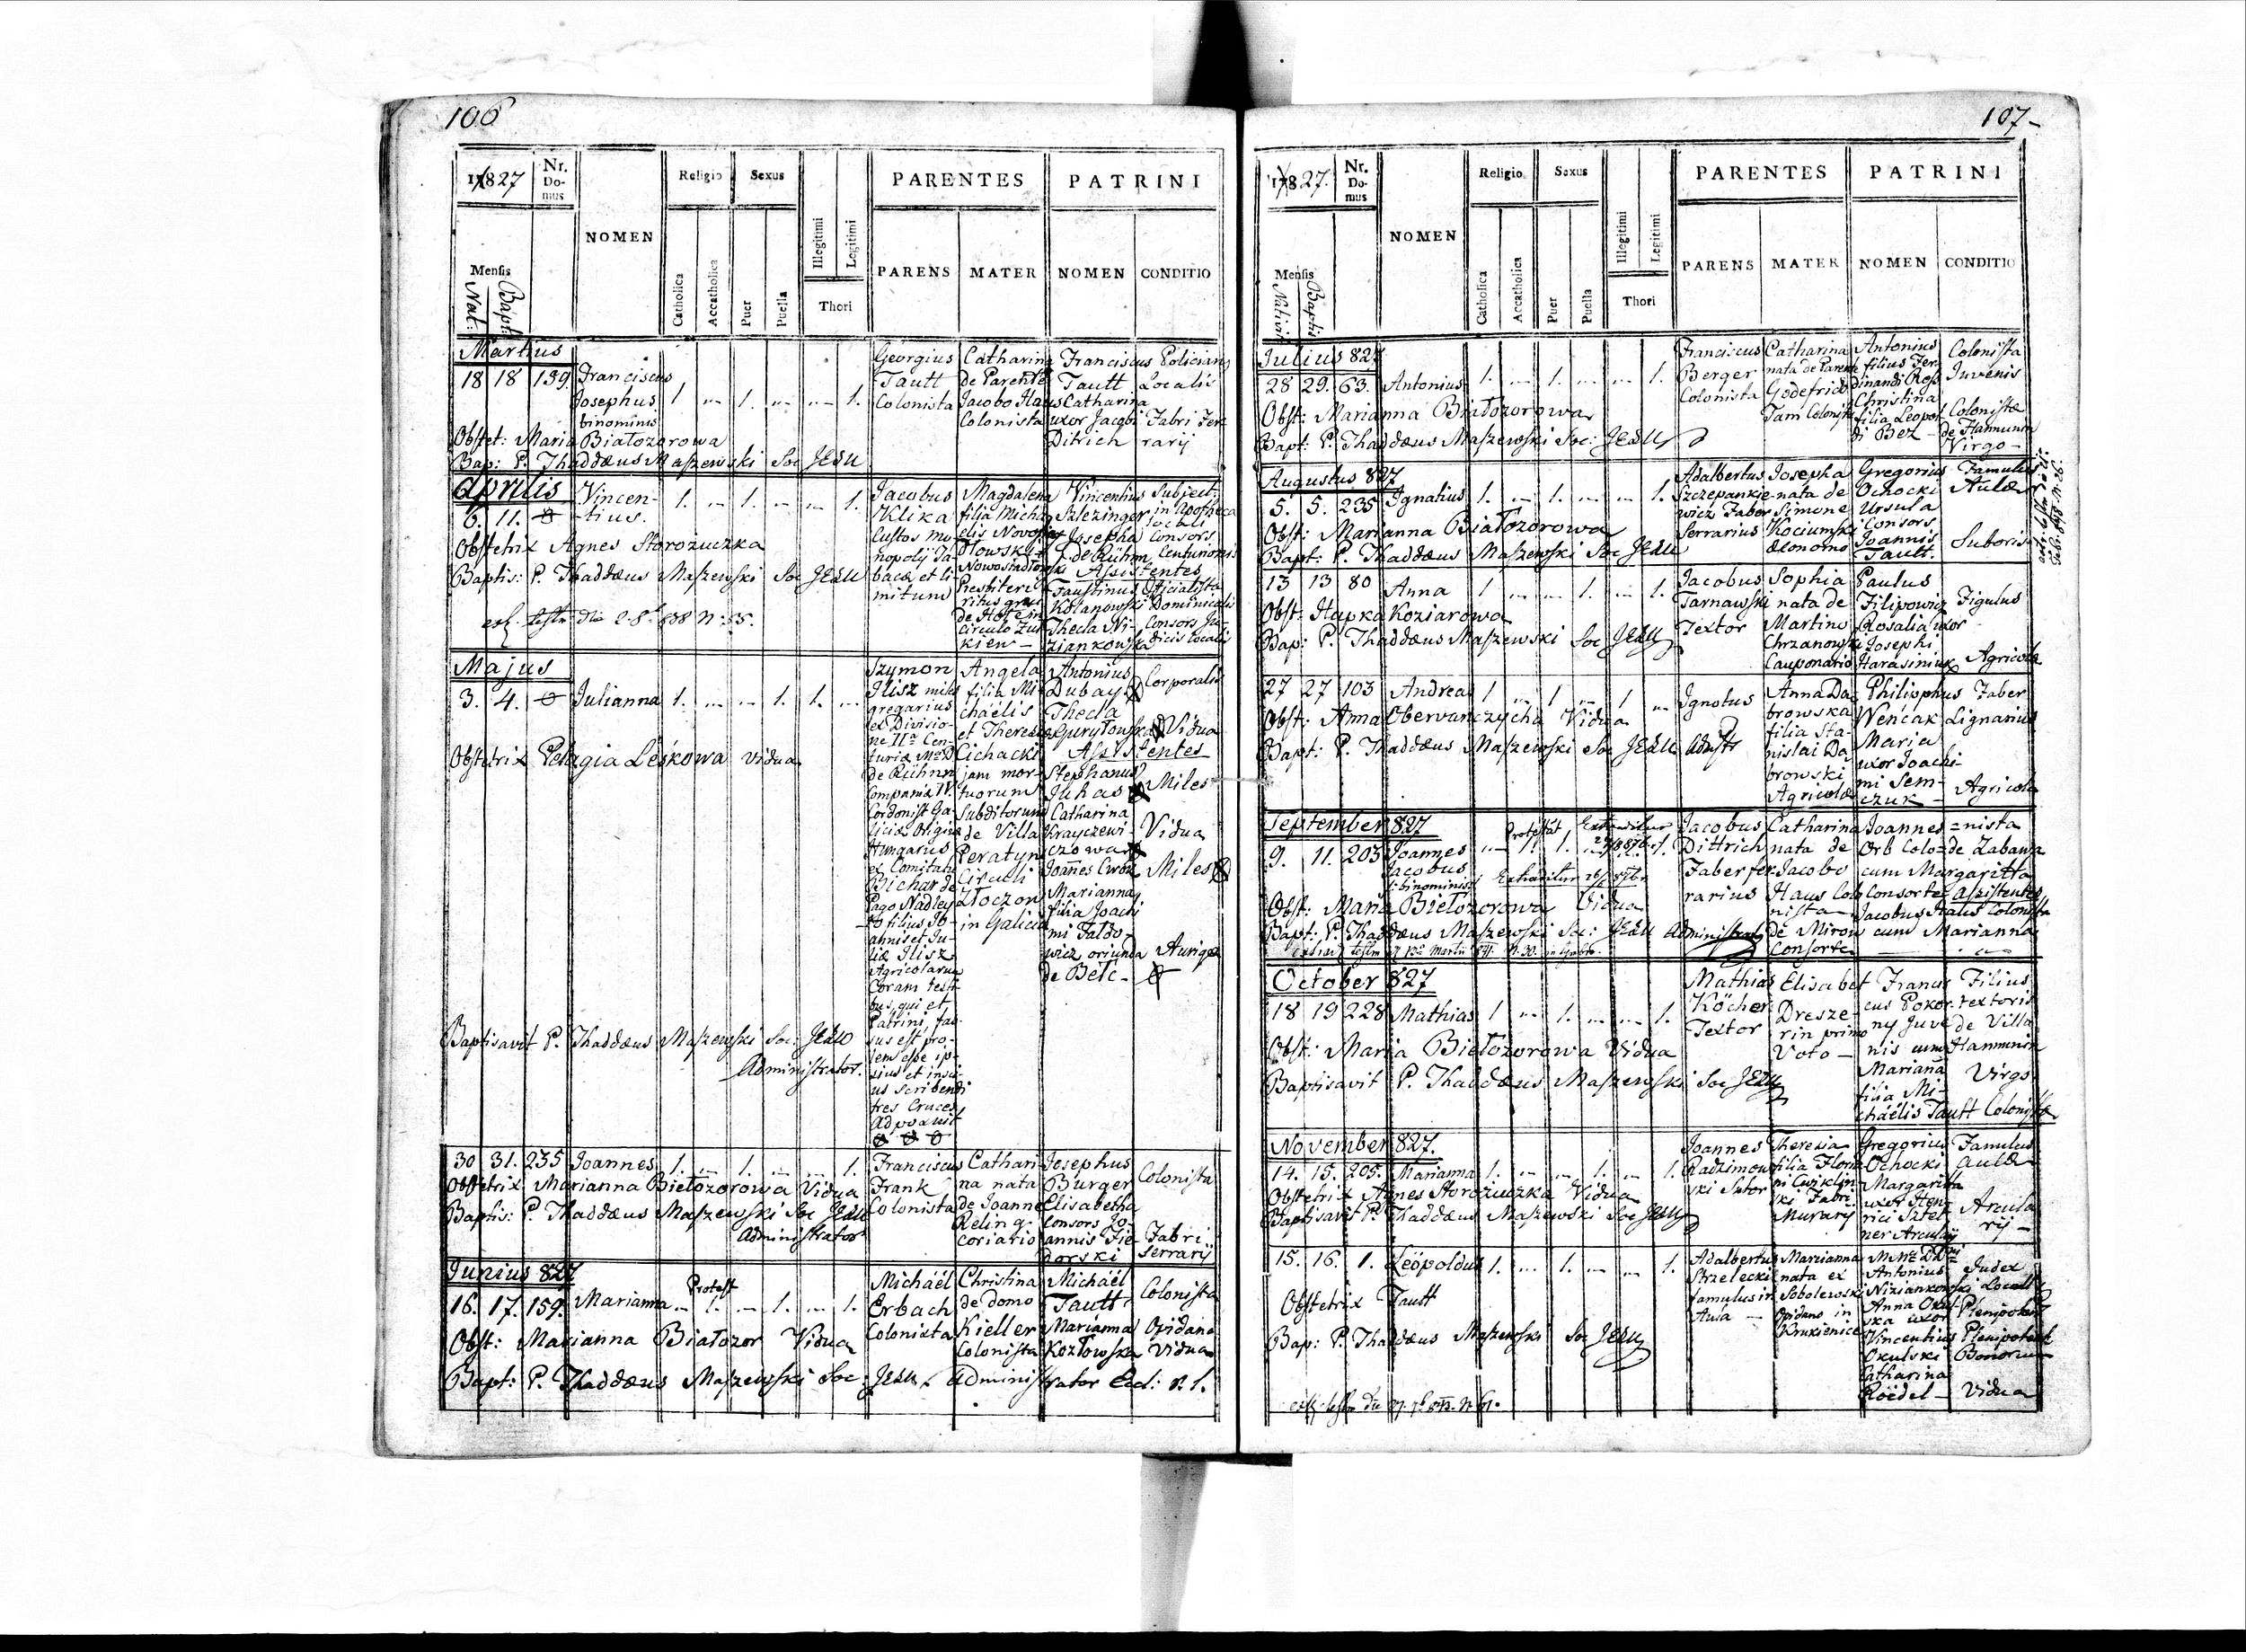 106
1827 Nr. Domus NOMEN Religio Sexus Illegitimi Legitimi PARENTES PATRINI
Mensis Nat: Bapt: Catholica Accatholica Puer Puella Thori PARENS MATER NOMEN CONDITIO
Martius
18 18 139 Franciscus Josephus binominis 1 " 1. " " 1.
Georgius Tautt Colonista
Catharina de Parente Jacobo Haus Colonista
Franciscus Tautt Catharina uxor Jacobi Ditrich
Localis Fabri Ferrarij
Obstet: Maria Białozorowa
Bap: P. Thaddæus Maszewski Soc JESU
Aprilis
6. 11. Vincentius. 1. " 1. " " 1.
Jacobus Klika Custos monopolij Tabacæ et limitum
Magdalena filia Michaelis
Presbiteri ritus græci
Vincentius Szlezinger Josepha
Assistentes
Faustinus Kolanowski Thecla Niziankowska
Subject: in Apotheca locali Consors
Consors Judicis Localis
Obstetrix Agnes Storożuczka
Baptis: P. Thaddæus Maszewski Soc JESU
Majus
3. 4. Julianna 1. " " 1. 1. "
Szymon Ilisz miles gregarius ex Divisione IIa Centuriæ
Compania IV. Cordonist Galiciæ Origine Hungarus ex Comitatu
filius Joannis et Juliæ Ilisz Agricolarum Coram testibus, qui et Patrini, fassus est prolem esse ipsius et inscius scribendi tres Cruces adposuit
Angela filia Michäelis et Theresiæ Cichacki jam mortuorum Subditorum de Villa Peratyn Circuli Złoczow in Galicia
Antonius Dubay Thecla Guryłowska
Assistentes
Stephanus Juhas Catharina Krayczewiczowa
Marianna filia Joachimi Faldowicz oriunda de Bełc
Corporalis
Vidua
Miles
Vidua
Miles
Aurigæ
Obstetrix Pelagia Leśkowa vidua
Baptisavit P. Thaddæus Maszewski Soc: JESU
Administrator.
30 31. 235 Joannes 1. " 1. " " 1.
Franciscus Frank Colonista
Catharina nata de Joanne Reling coriario
Josephus Burger Elisabetha Consors Joannis Fiedorski
Colonista
Fabri Serrarij
Obstetrix Marianna Biełozorowa Vidua
Baptis: P. Thaddæus Maszewski Soc JESU
Administrator
Junius 827
16. 17. 159. Marianna Protest " 1. " 1. " 1.
Michäël Erbach Colonista
Christina de domo Kieller Colonista
Michäël Tautt Marianna Kozłowska
Colonista
Opidana Vidua
Obst: Marianna Białozor Vidua
Bapt: P. Thaddæus Maszewski Soc JESU Administrator Eccl: r. l.
107
1827. Nr. Domus NOMEN Religio Sexus Illegitimi Legitimi PARENTES PATRINI
Mensis Baptis Catholica Accatholica Puer Puella Thori PARENS MATER NOMEN CONDITIO
Julius 827
28 29. 63. Antonius 1. " 1. " " 1.
Franciscus Berger Colonista
Catharina nata de Parente Godefrido Tam Colonista
Antonius filius Ferdinandi Ross Christina filia Leopoldi Bez
Colonista Juvenis
Colonistæ de Hammunin Virgo
Obst: Marianna Białozorowa
Bapt: P. Thaddæus Maszewski Soc: JESU
Augustus 827
5. 5. 235 Ignatius 1. " 1. " " 1.
Adalbertus Szczepankiewicz Faber Serrarius
Josepha nata de Simone Kociumski Œconomo
Gregorius Ochocki Ursula Consors Joannis Tautt.
Famulus Aulæ
Sutoris
Obst: Marianna Białozorowa
Bapt: P. Thaddæus Maszewski Soc JESU
13 13 80 Anna 1 " " 1. " 1.
Jacobus Tarnawski Textor
Sophia nata de Martino Chrzanowski Cauponario
Paulus Filipowicz Rosalia uxor Josephi Harasiniuk
Figulus
Agricolæ
Obst: Hapka Koziarowa
Bap: P. Thaddæus Maszewski Soc JESU
27 27 103 Andreas 1 " 1 " 1 "
Ignotus
Anna Dabrowska filia Stanislai Dabrowski Agricolæ
Philipphus Wenćak Maria uxor Joachimi Semczuk
Faber Lignarius
Agricolæ
Obst: Anna Oberwanczycha Vidua
Bapt: P. Thaddæus Maszewski Soc JESU Adstr
September 827
9. 11. 203 Joannes Jacobus binominis " 1. 1. " " 1.
Protestāt
Jacobus Dittrich Faber ferrarius
Catharina nata de Jacobo Haus Colonista de Mirow Consorte
Joannes Orb Colonista de Zabawa cum Margaritta Consorte assistentes Jacobus Haus Colonista cum Marianna
Obst: Maria Biełozorowa Vidua
Bapt: P. Thaddæus Maszewski Soc: JESU Administrator
October 827
18 19 228 Mathias 1 " 1. " " 1.
Mathias Köcher Textor
Elisabet Dreszerin primo Voto
Francus Pokorny Juvenis cum Marianā filia Michäelis Tautt Colonistæ
Filius textoris de Villa Hammunin
Virgo
Obst: Maria Biełozorowa Vidua
Baptisavit P. Thaddæus Maszewski Soc JESU
November 827.
14. 15. 205. Marianna 1. " " 1. " 1.
Joannes Radzimowski Sutor
Theresia filia Floriani Cwiklinski Fabri Murarij
Gregorius Ochocki Margarita uxor Henrici Sztetner Arcularij
Famulus aulæ
Arcularij
Obstetrix Agnes Storożuczka Vidua
Baptisavit P. Thaddæus Maszewski Soc JESU
15. 16. 1. Leöpoldus 1. " 1. " " 1.
Adalbertus Strzelecki famulus in Aula
Marianna nata ex Sobolewski Opidano in Krukienice
Antonius Niziankowski Anna Okulska uxor Vincentius Okulski Catharina Roëdel
Judex Localis
Plenipotent
Bonorum
Vidua
Obstetrix Tautt
Bap: P. Thaddæus Maszewski Soc JESU